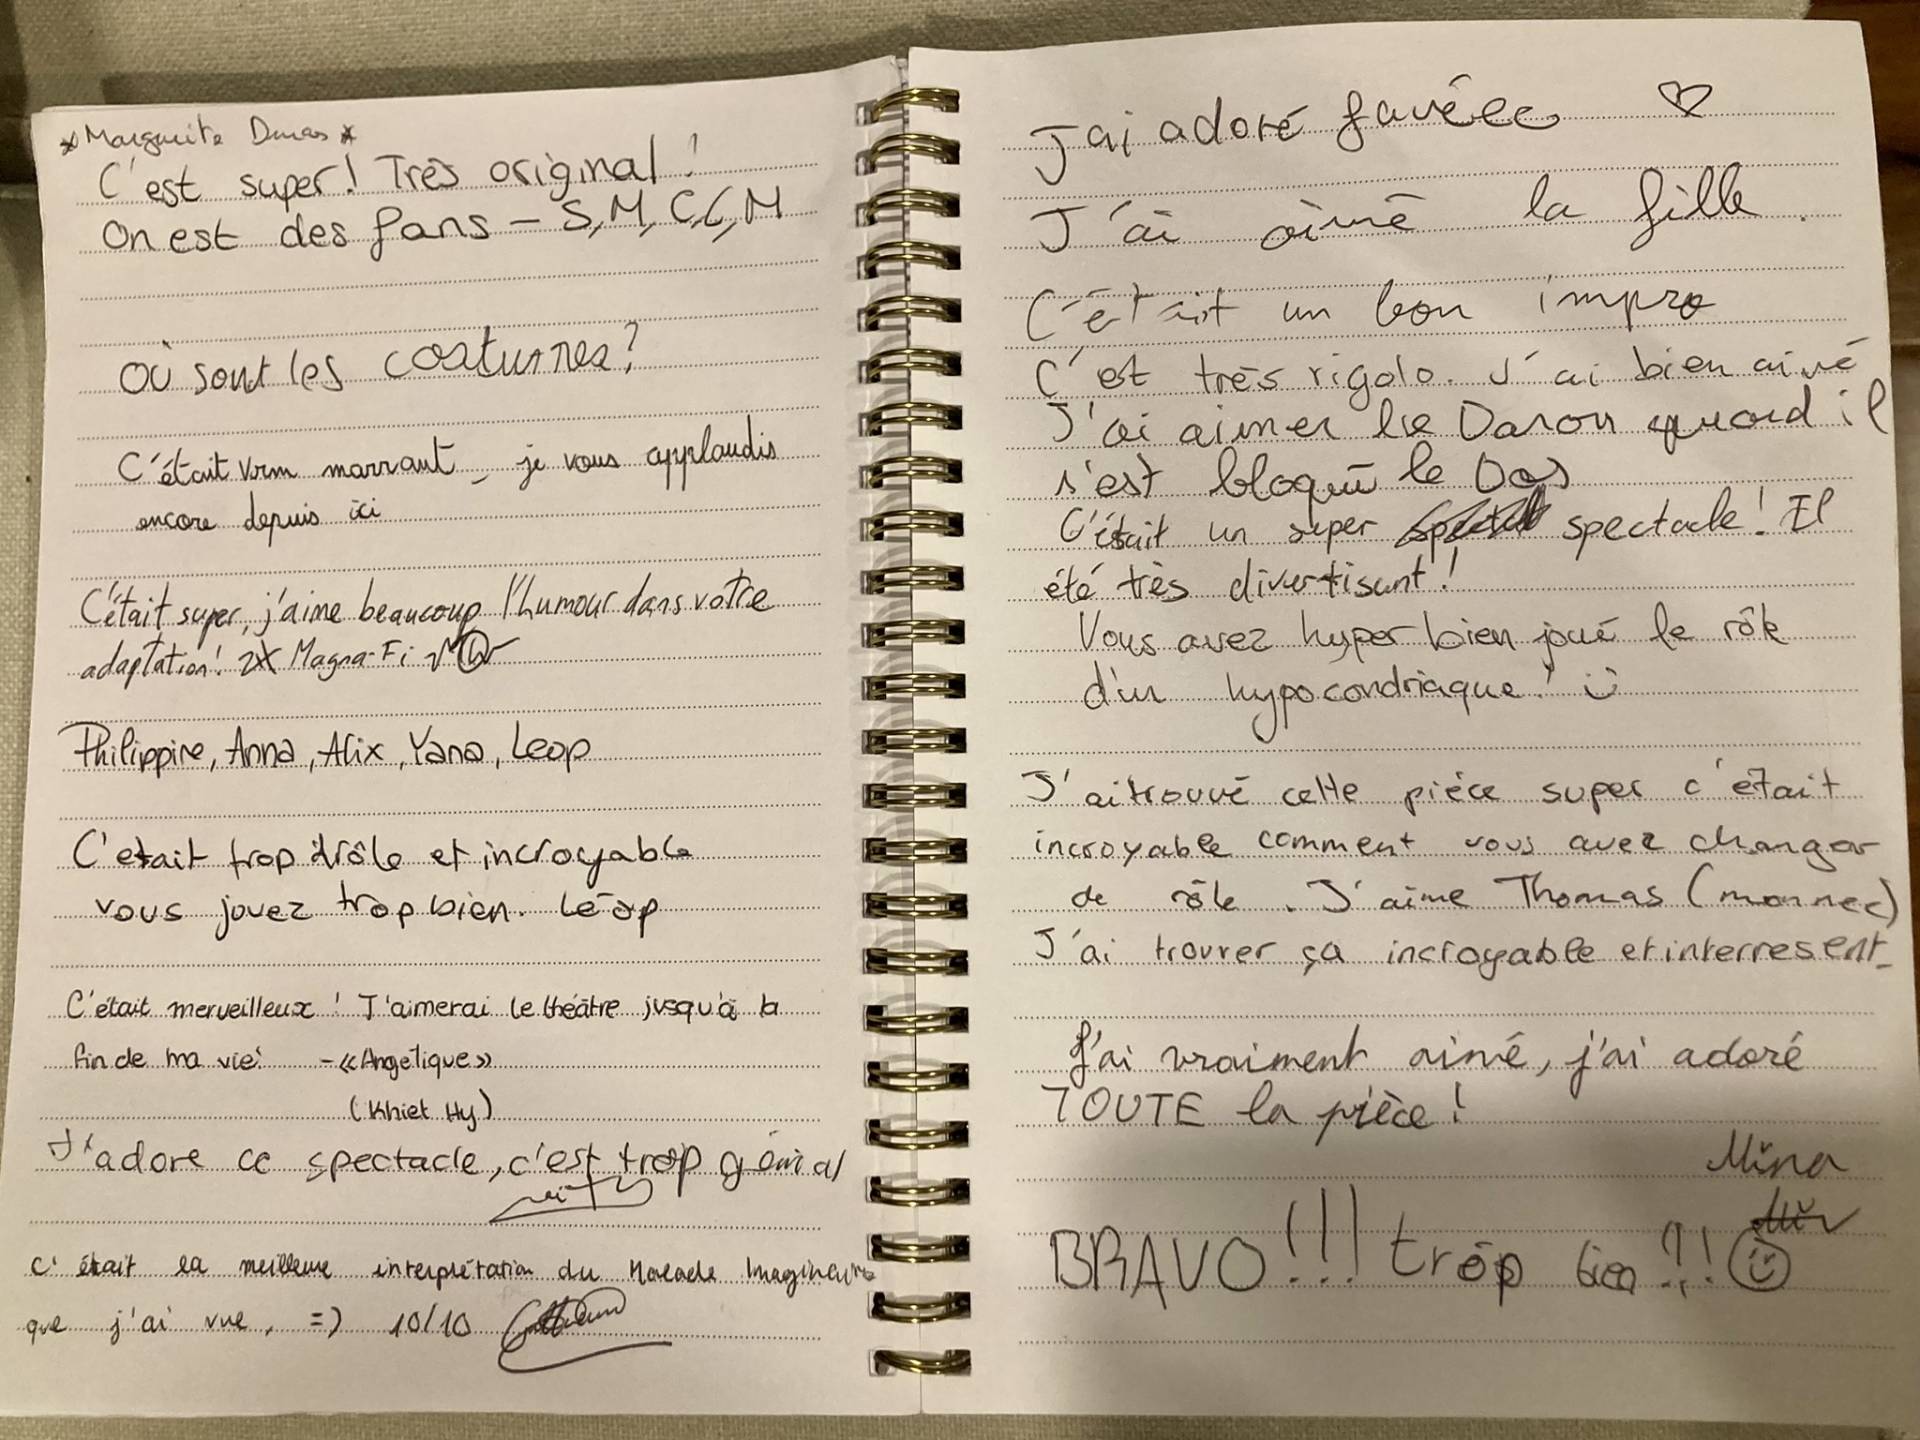 * Marguerite Duras *
C'est super! Très original!
On est des fans – S, M, C, C, M
Où sont les costumes?
C'était vrm marrant, je vous applaudis
encore depuis ici
C'était super, j'aime beaucoup l'humour dans votre
adaptation! Magna-Fi
Philippine, Anna, Alix, Yana, Leop
C'etait trop drôle et incroyable
vous jouez trop bien. Léop
C'était merveilleux! J'aimerai le théâtre jusqu'à la
fin de ma vie! – «Angelique»
(Khiet Hy)
J'adore ce spectacle, c'est trop génial
C'était la meilleure interprétation du Malade Imaginaire
que j'ai vue, =) 10/10
J'ai adoré ♡
J'ai aimé la fille.
C'était un bon impro
C'est très rigolo. J'ai bien aimé
J'ai aimer le Daron quand il
s'est bloqué le Dos
C'était un super spectacle! Il
été très divertisant!
Vous avez hyper bien joué le rôle
d'un hypocondriaque!
J'ai trouvé cette pièce super c'était
incroyable comment vous avez changer
de rôle. J'aime Thomas
J'ai trouver ça incroyable et interresent.
J'ai vraiment aimé, j'ai adoré
TOUTE la pièce!
Mina
BRAVO!!! trop bien!!!